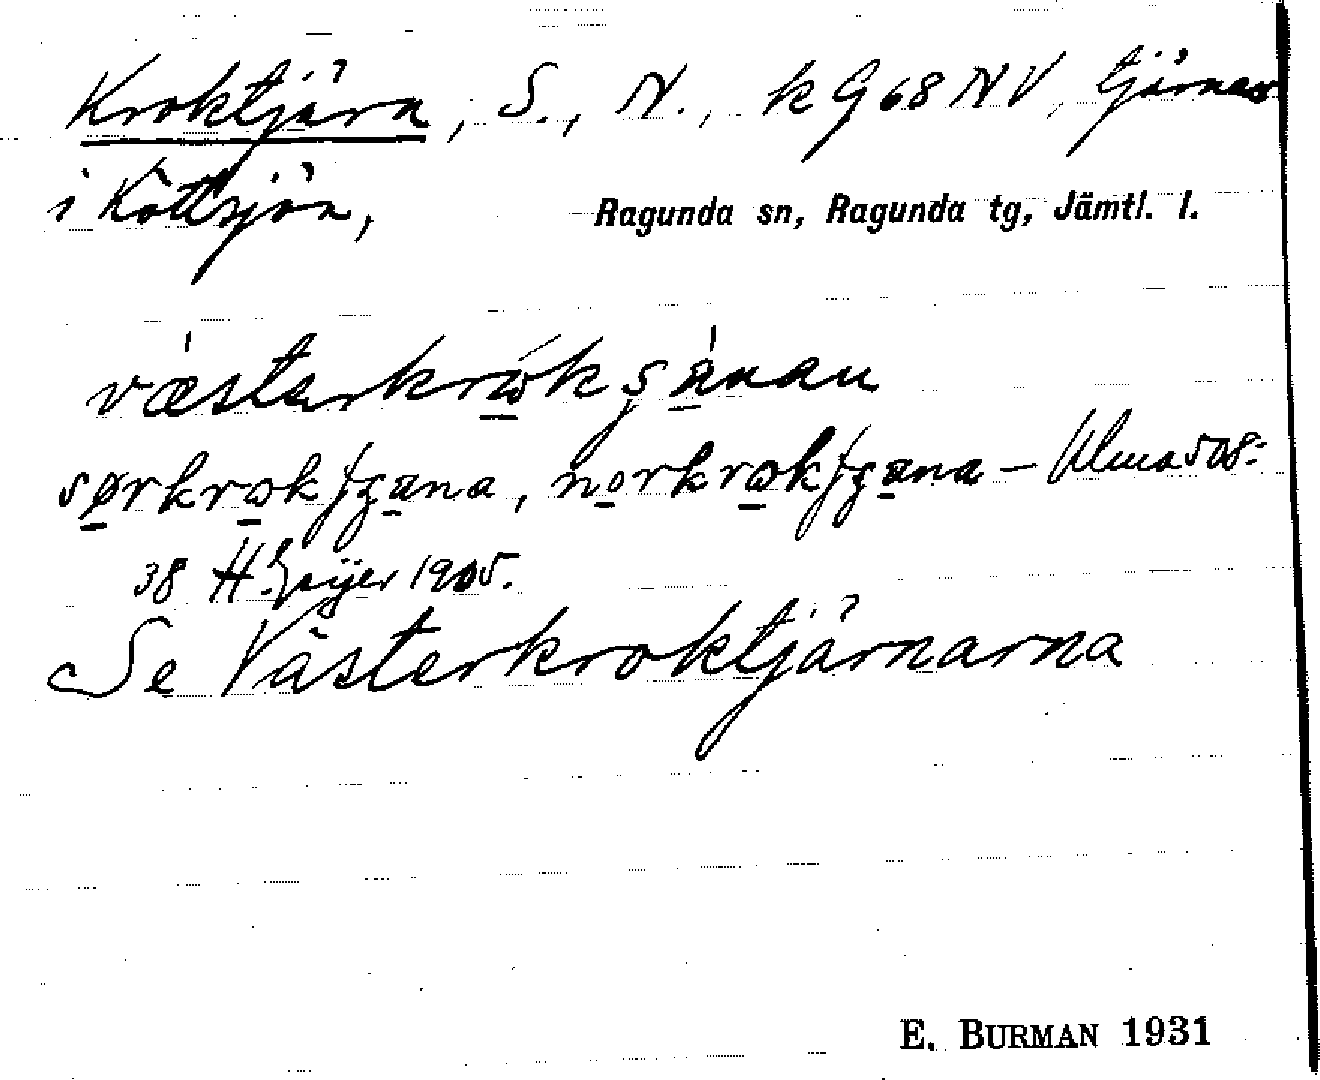 Kroktjärn, S., N., k G 68 NV, tjärnar
i Köttsjön,
Ragunda sn, Ragunda tg, Jämtl. l.
væsterkrokʂänan
sørkrokʃʒana, norkrokʃʒana – Ulma 508:
38 H. Geijer 1905.
Se Västerkroktjärnarna
E. BURMAN 1931